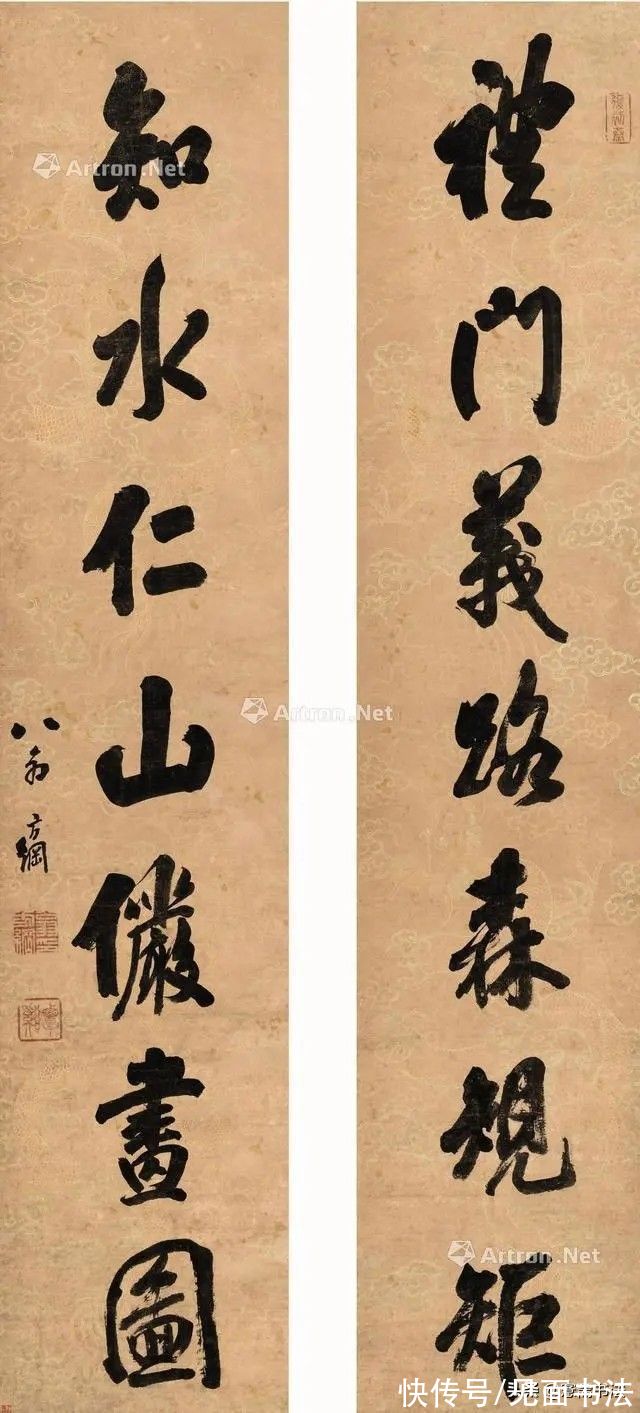 禮門義路森規矩
知水仁山儼畫圖
八翁方綱
Artron.Net
Artron.Net
Artron.Net
快传号/见面书法